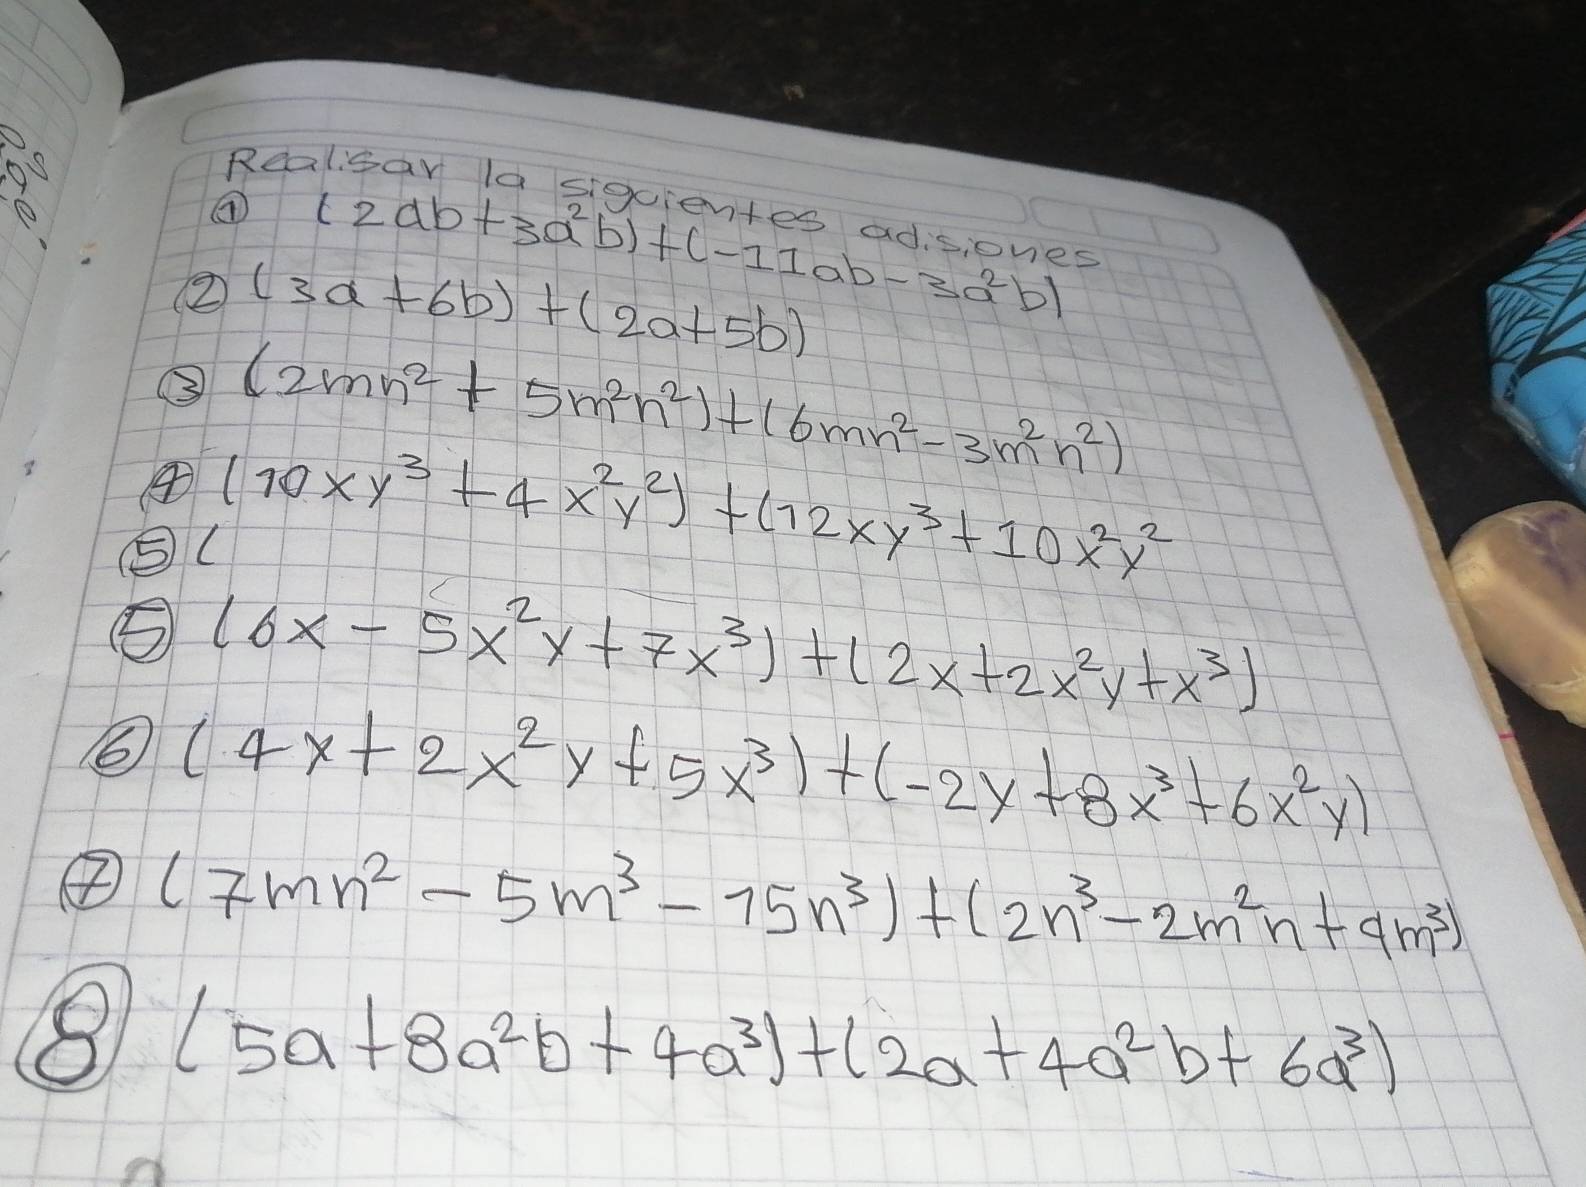 Realisar la siguientes adisiones
① (2ab+3a²b)+(-11ab-3a²b)
② (3a+6b)+(2a+5b)
③ (2mn²+5m²n²)+(6mn²-3m²n²)
④ (10xy³+4x²y²)+(12xy³+10x²y²
⑤ (
⑤ (6x-5x²y+7x³)+(2x+2x²y+x³)
⑥ (4x+2x²y+5x³)+(-2y+8x³+6x²y)
⑦ (7mn²-5m³-15n³)+(2n³-2m²n+9m³)
⑧ (5a+8a²b+4a³)+(2a+4a²b+6a³)